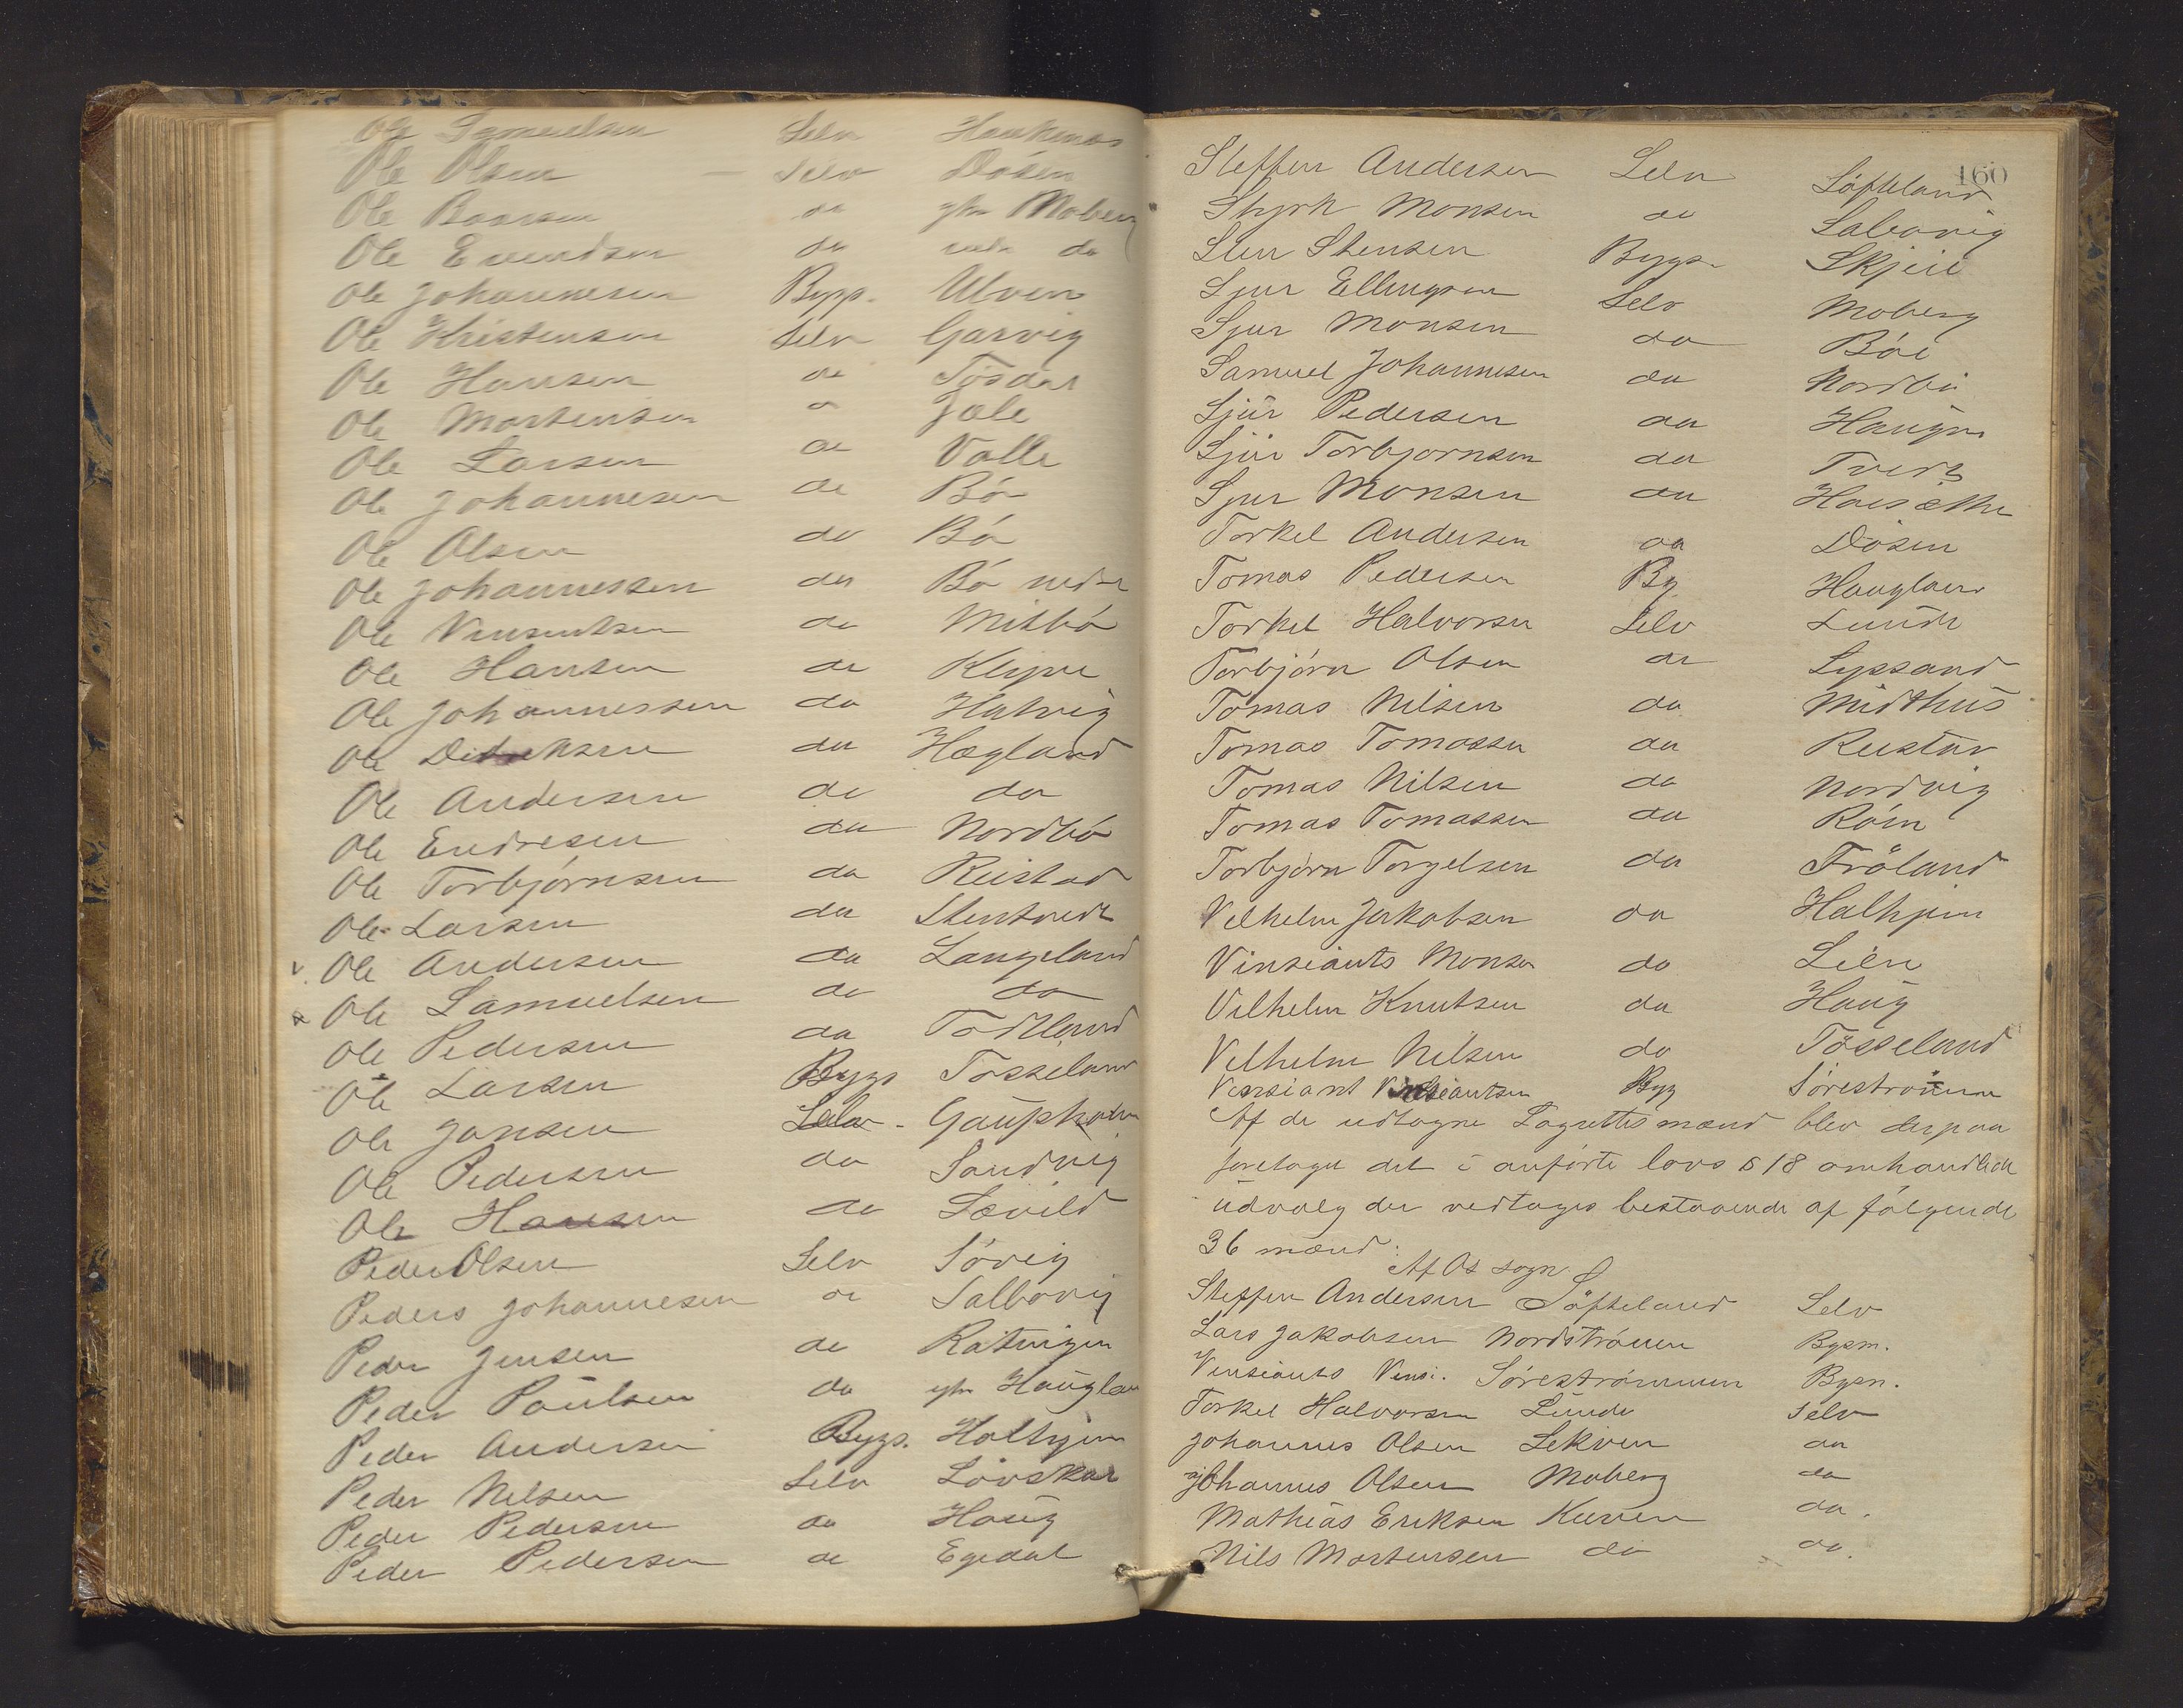 Ole Samuelsen Selv Haukenæs
Ole Olsen Selv Døsen
Ole Baarsen do ytre Moberg
Ole Evendsen do do
Ole Johannesen Bygs. Ulven
Ole Kristensen Selv Garvig
Ole Hansen do Tøsdal
Ole Mortensen do Jæle
Ole Larsen do Valle
Ole Johannesen do Bø
Ole Olsen do Bø
Ole Johannessen do Bø nedre
Ole Vinsentsen do Mitbø
Ole Hansen do Kleppe
Ole Johannessen do Hatvig
Ole Didriksen do Hægland
Ole Andersen do do
Ole Endresen do Nordbø
Ole Torbjørnsen do Reistad
Ole Larsen do Stentvedt
Ole Andersen do Langeland
Ole Samuelsen do do
Ole Pedersen do Todtland
Ole Larsen Bygs Tøsseland
Ole Jansen Selv Gaupholm
Ole Pedersen do Sandvig
Ole Hansen do Sævild
Peder Olsen Selv Søvig
Peders Johannesen do Salbovig
Peder Jensen do Røtingen
Peder Paulsen do ytre Haugland
Peder Andersen Bygs. Halhjem
Peder Nilsen Selv Løvskar
Peder Pedersen do Haug
Peder Pedersen do Egedal
160
Steffen Andersen Selv Søfteland
Styrk Monsen do Salbovig
Sten Stensen Bygs. Skjeie
Sjur Ellingsen Selv Moberg
Sjur Monsen do Bøe
Samuel Johannesen do Nordbø
Sjur Pedersen do Haugen
Sjur Torbjornsen do Tveit
Sjur Monsen do
Torkel Andersen do Døsen
Tomas Pedersen By Haugland
Torkel Halvorsen Selv Lunde
Torbjørn Olsen do Lyssand
Tomas Nilsen do Midthus
Tomas Tomassen do Reistad
Tomas Nilsen do Nordvig
Tomas Tomassen do Røen
Torbjørn Torgelsen do Frøland
Vilhelm Jakobsen do Halhjem
Vinsiants Monsen do Lien
Vilhelm Knutsen do Haug
Vilhelm Nilsen do Tøsseland
Vinsiant Vinsiantsen Byg Sørestrømmen
Af de udtagne Lagrettesmænd blev derpaa
foretaget det i anførte lovs § 18 omhandlede
udvalg der vedtages bestaaende af følgende
36 mænd:
Af Os sogn.
Steffen Andersen Søfteland Selv
Lars Jakobsen Nordstrømen Bygsm.
Vinsiants Vinsi. Sørestrømmen Bygsm.
Torkel Halvorsen Lunde Selv
Johannes Olsen Lekven do
Johannes Olsen Moberg do
Mathias Eriksen Kuven do.
Nils Mortensen do do.